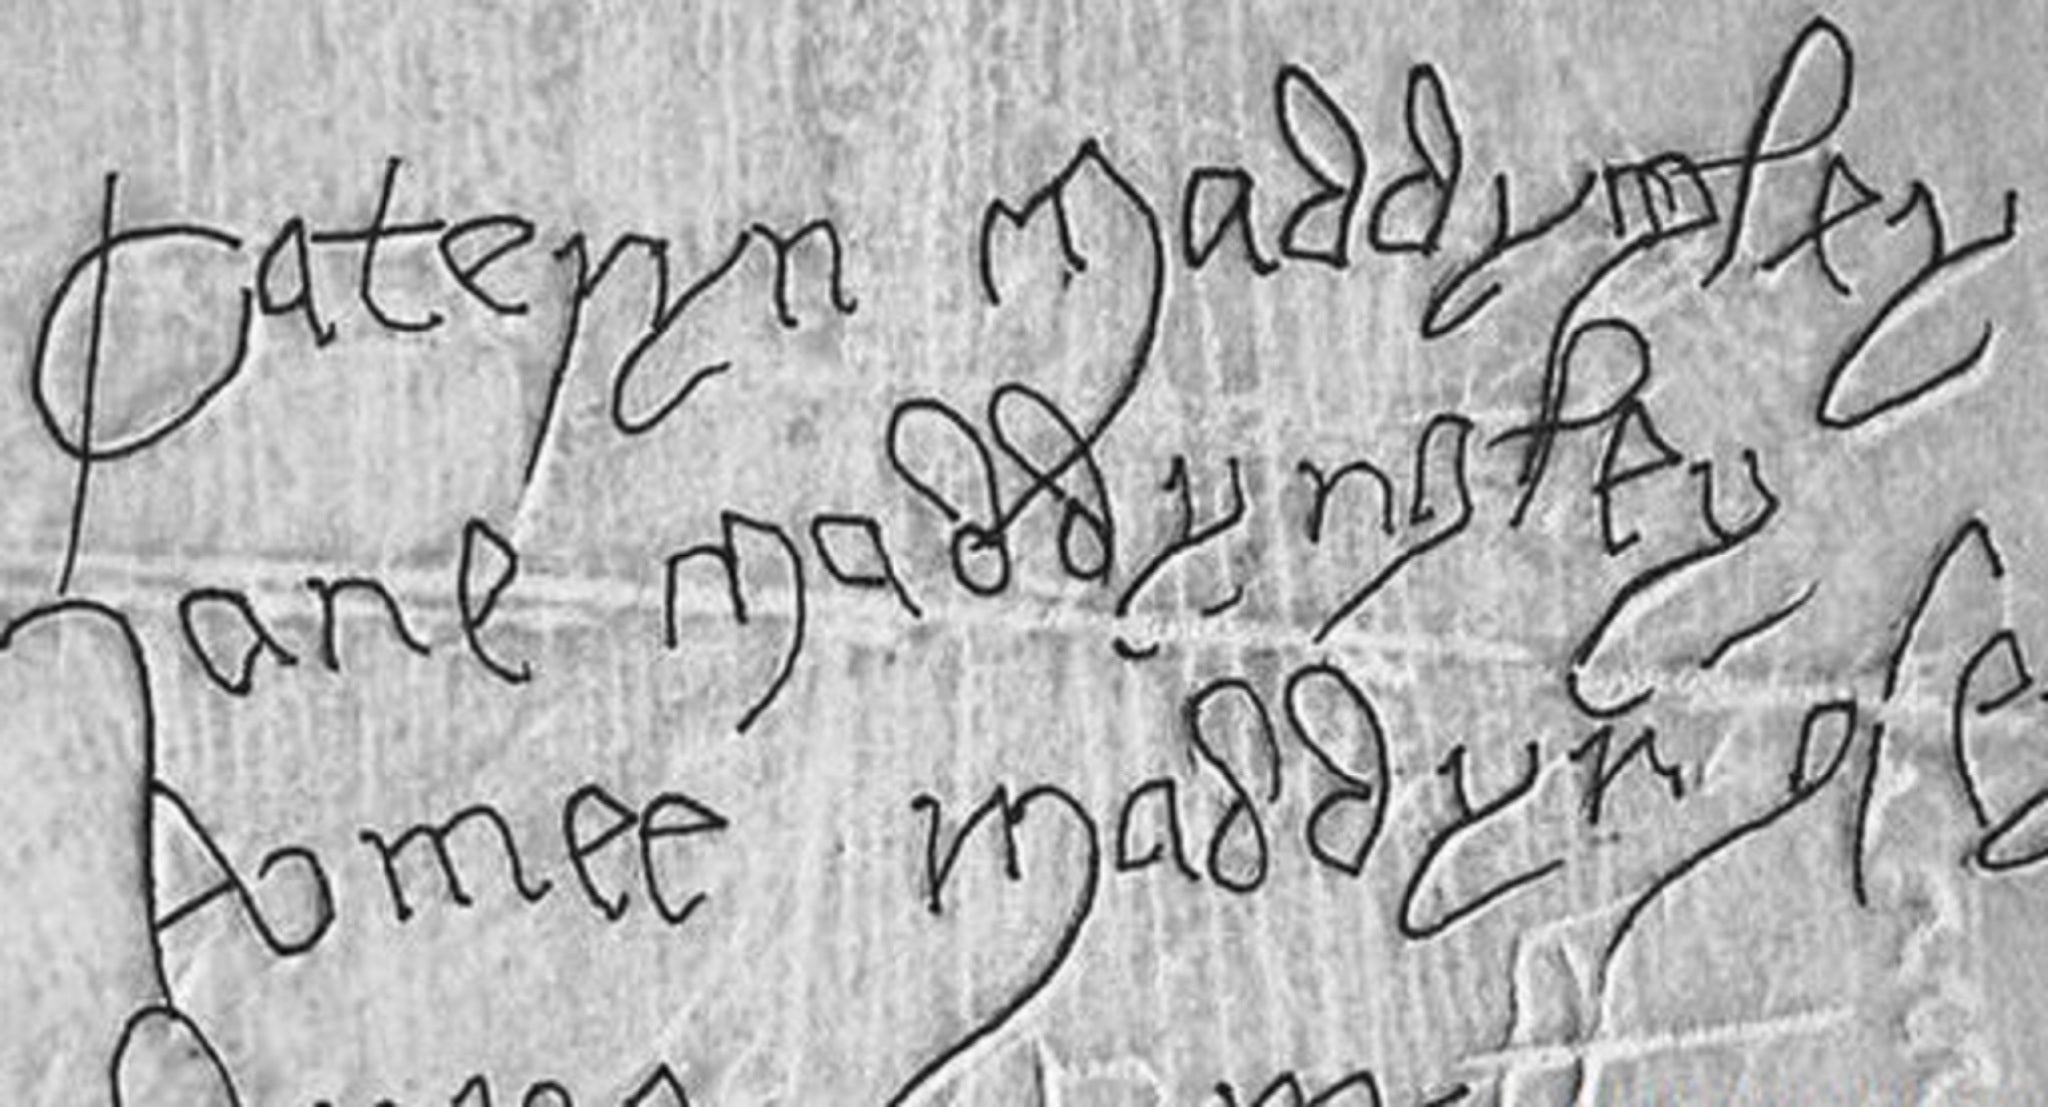 Cateryn Maddyngley
Jane Maddyngley
Amee Maddyngley